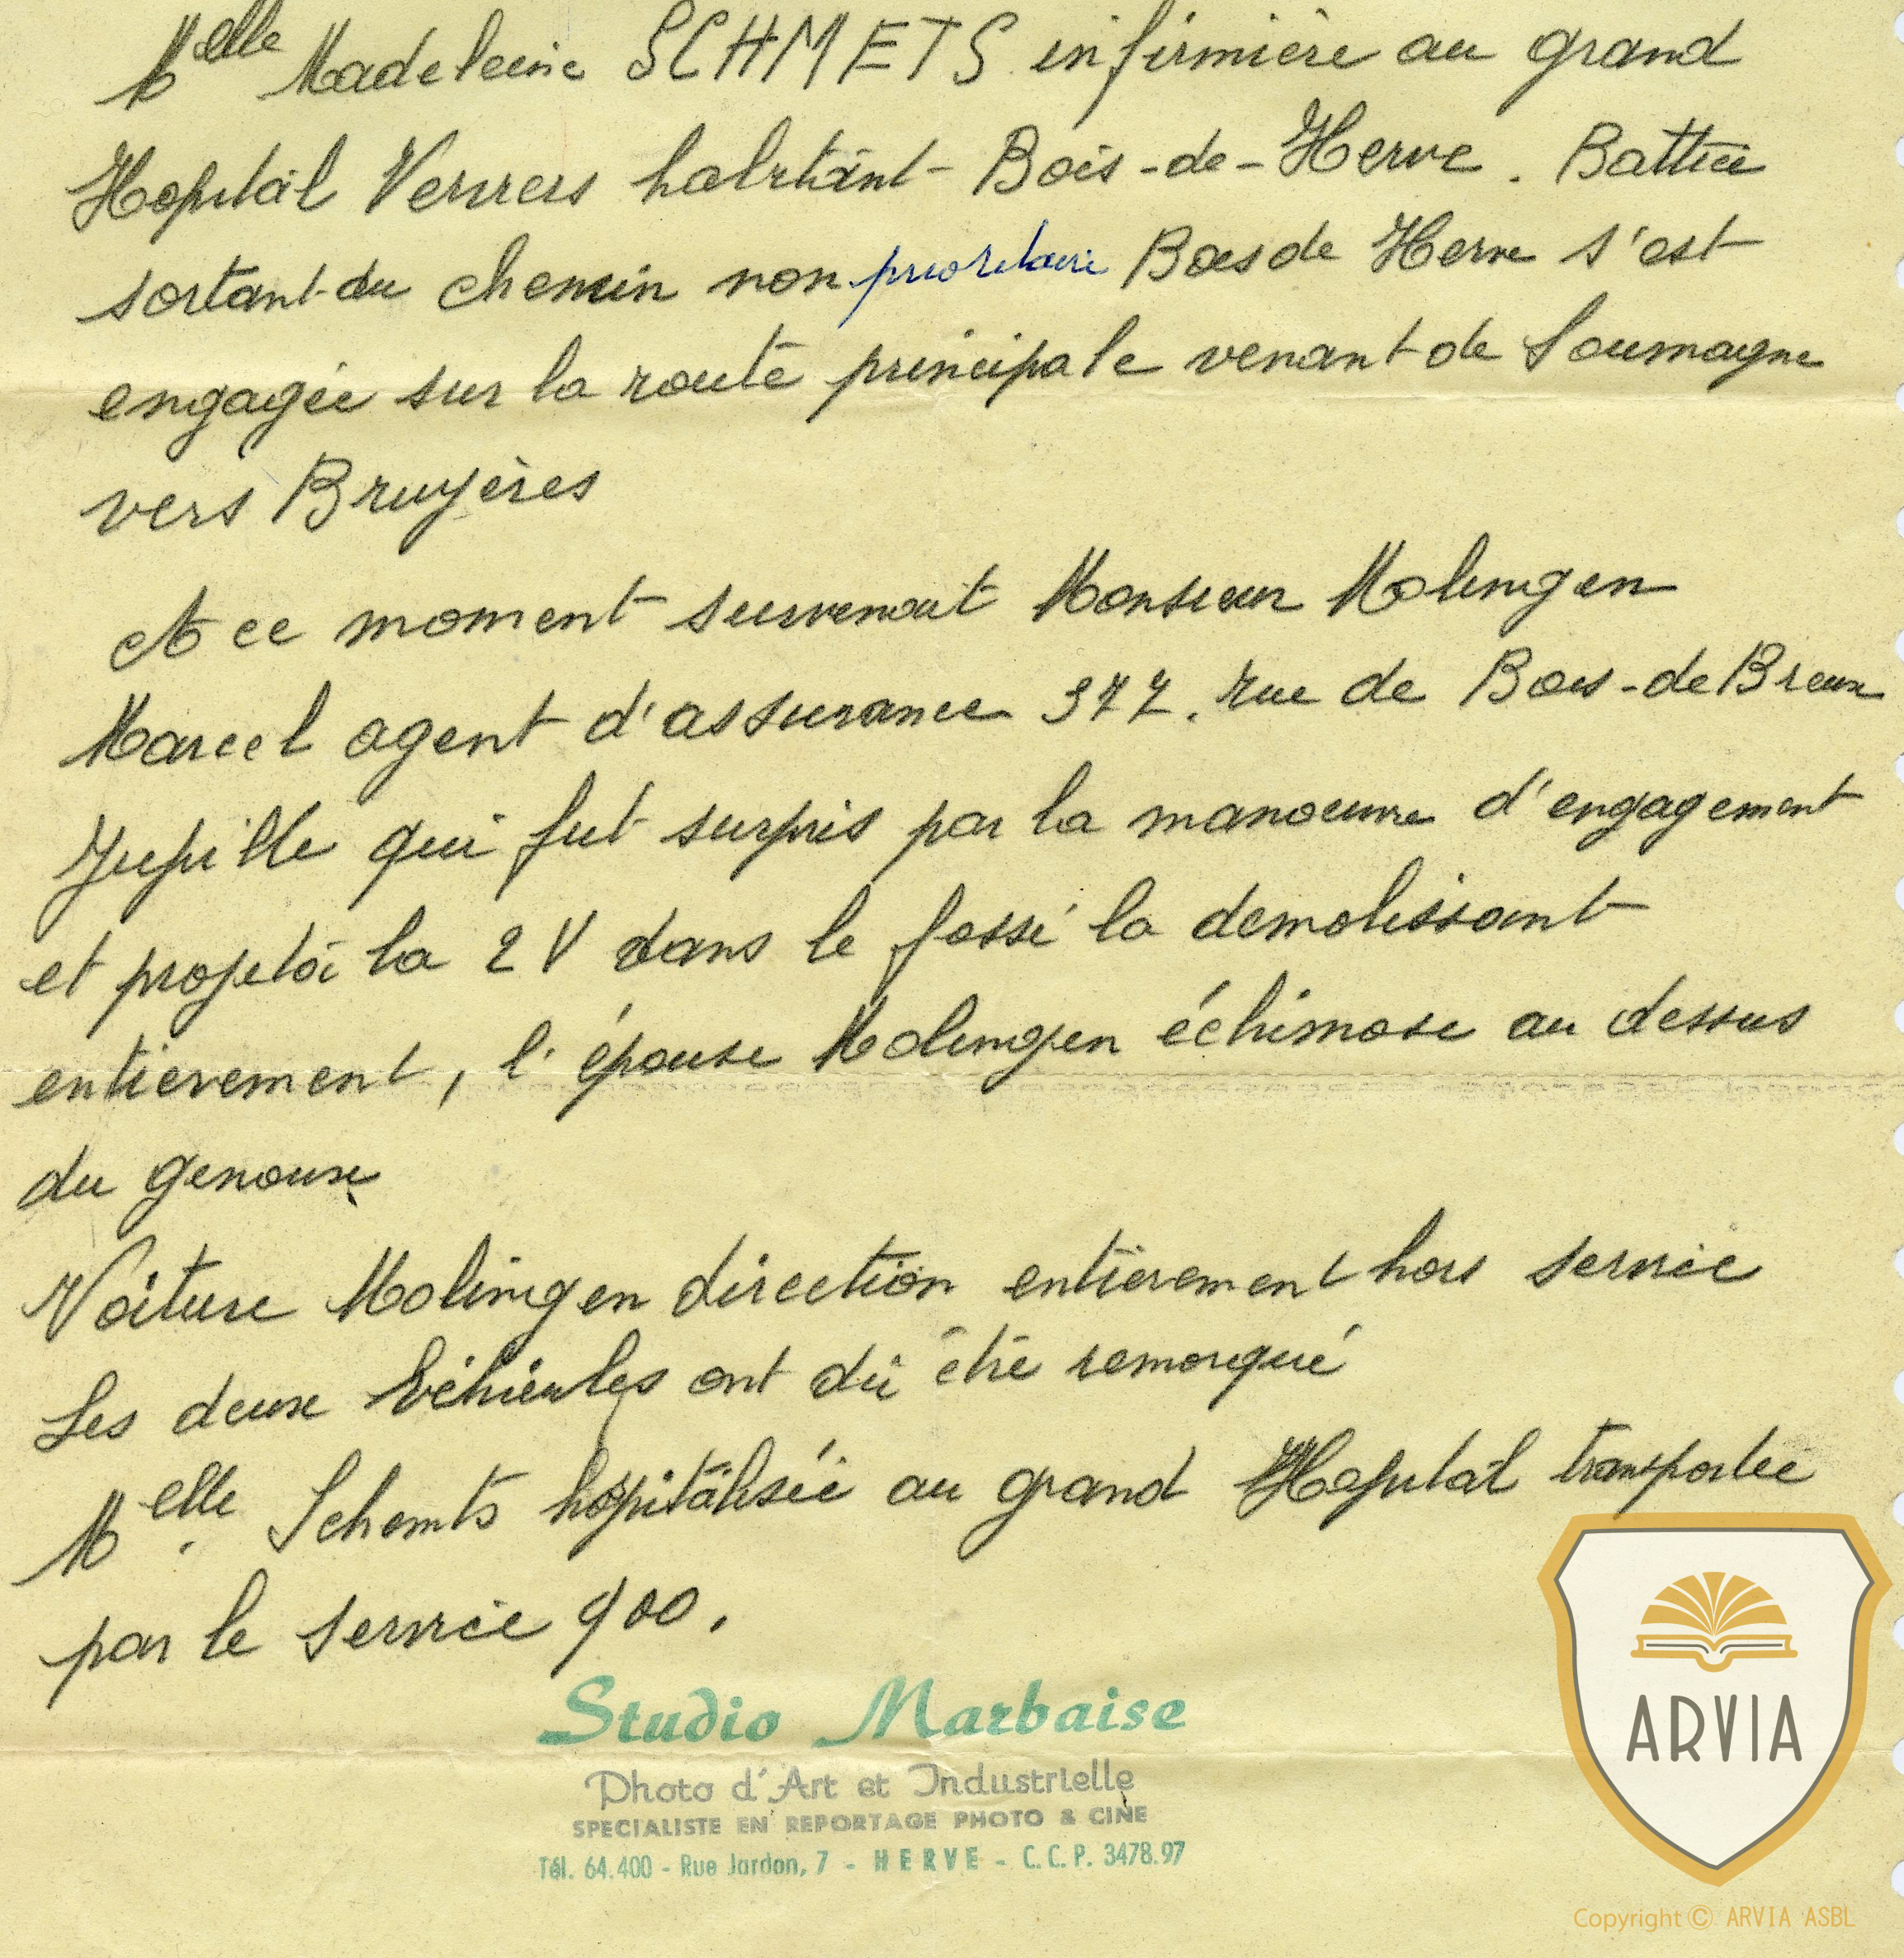 Melle Madeleine SCHMETS infirmière au grand
Hopital Verviers habitant Bois-de-Herve. Battice
sortant du chemin non prioritaire Bois de Herve s'est
engagée sur la route principale venant de Soumagne
vers Bruyères
A ce moment survenait Monsieur Molingen
Marcel agent d'assurance 377, rue de Bois-de Breux
Jupille qui fut surpris par la manoeuvre d'engagement
et projeta la 2 V dans le fossé la demolissant
entierement, l'épouse Molingen échimose au dessus
du genoux
Voiture Molingen direction entièrement hors service
Les deux Véhicules ont dû être remorqué
Melle. Schemts hospitalisée au grand Hopital transportée
par le service 900.
Studio Marbaise
Photo d'Art et Industrielle
SPECIALISTE EN REPORTAGE PHOTO & CINE
Tél. 64.400 - Rue Jardon, 7 - HERVE - C.C.P. 3478.97
ARVIA
Copyright © ARVIA ASBL